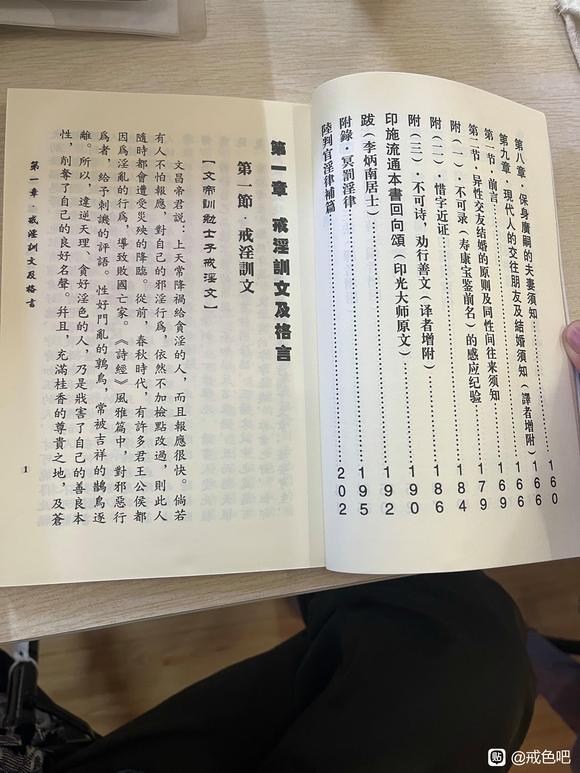 第八章·保身廣嗣的夫妻須知………160
第九章·現代人的交往朋友及結婚須知（譯者增附）…166
第一节·前言………166
第二节·异性交友结婚的原则及同性间往来须知………169
附（一）·不可录（寿康宝鉴前名）的感应纪验………179
附（二）·惜字近证………184
附（三）·不可诗，劝行善文（译者增附）………186
印施流通本書回向頌（印光大师原文）………190
跋（李炳南居士）………192
附錄·冥罰淫律………195
陸判官淫律補篇………202
第一章·戒淫訓文及格言
第一節·戒淫訓文
【文帝訓勉士子戒淫文】
文昌帝君說：上天常降禍給貪淫的人，而且報應很快。倘若
有人不怕報應，對自己的邪淫行為，依然不加檢點改過，則此人
隨時都會遭受災殃的降臨。從前，春秋時代，有許多君王公侯都
因爲淫亂的行爲，導致敗國亡家。《詩經》風雅篇中，對邪惡行
爲者，給予刺譏的評語。性好鬥亂的鶉鳥，常被吉祥的鵲鳥逐
離。所以，違逆天理、貪好淫色的人，乃是戕害了自己的善良本
性，削奪了自己的良好名聲。幷且，充滿桂香的尊貴之地，及蒼
第一章·戒淫訓文及格言
1
貼 @戒色吧